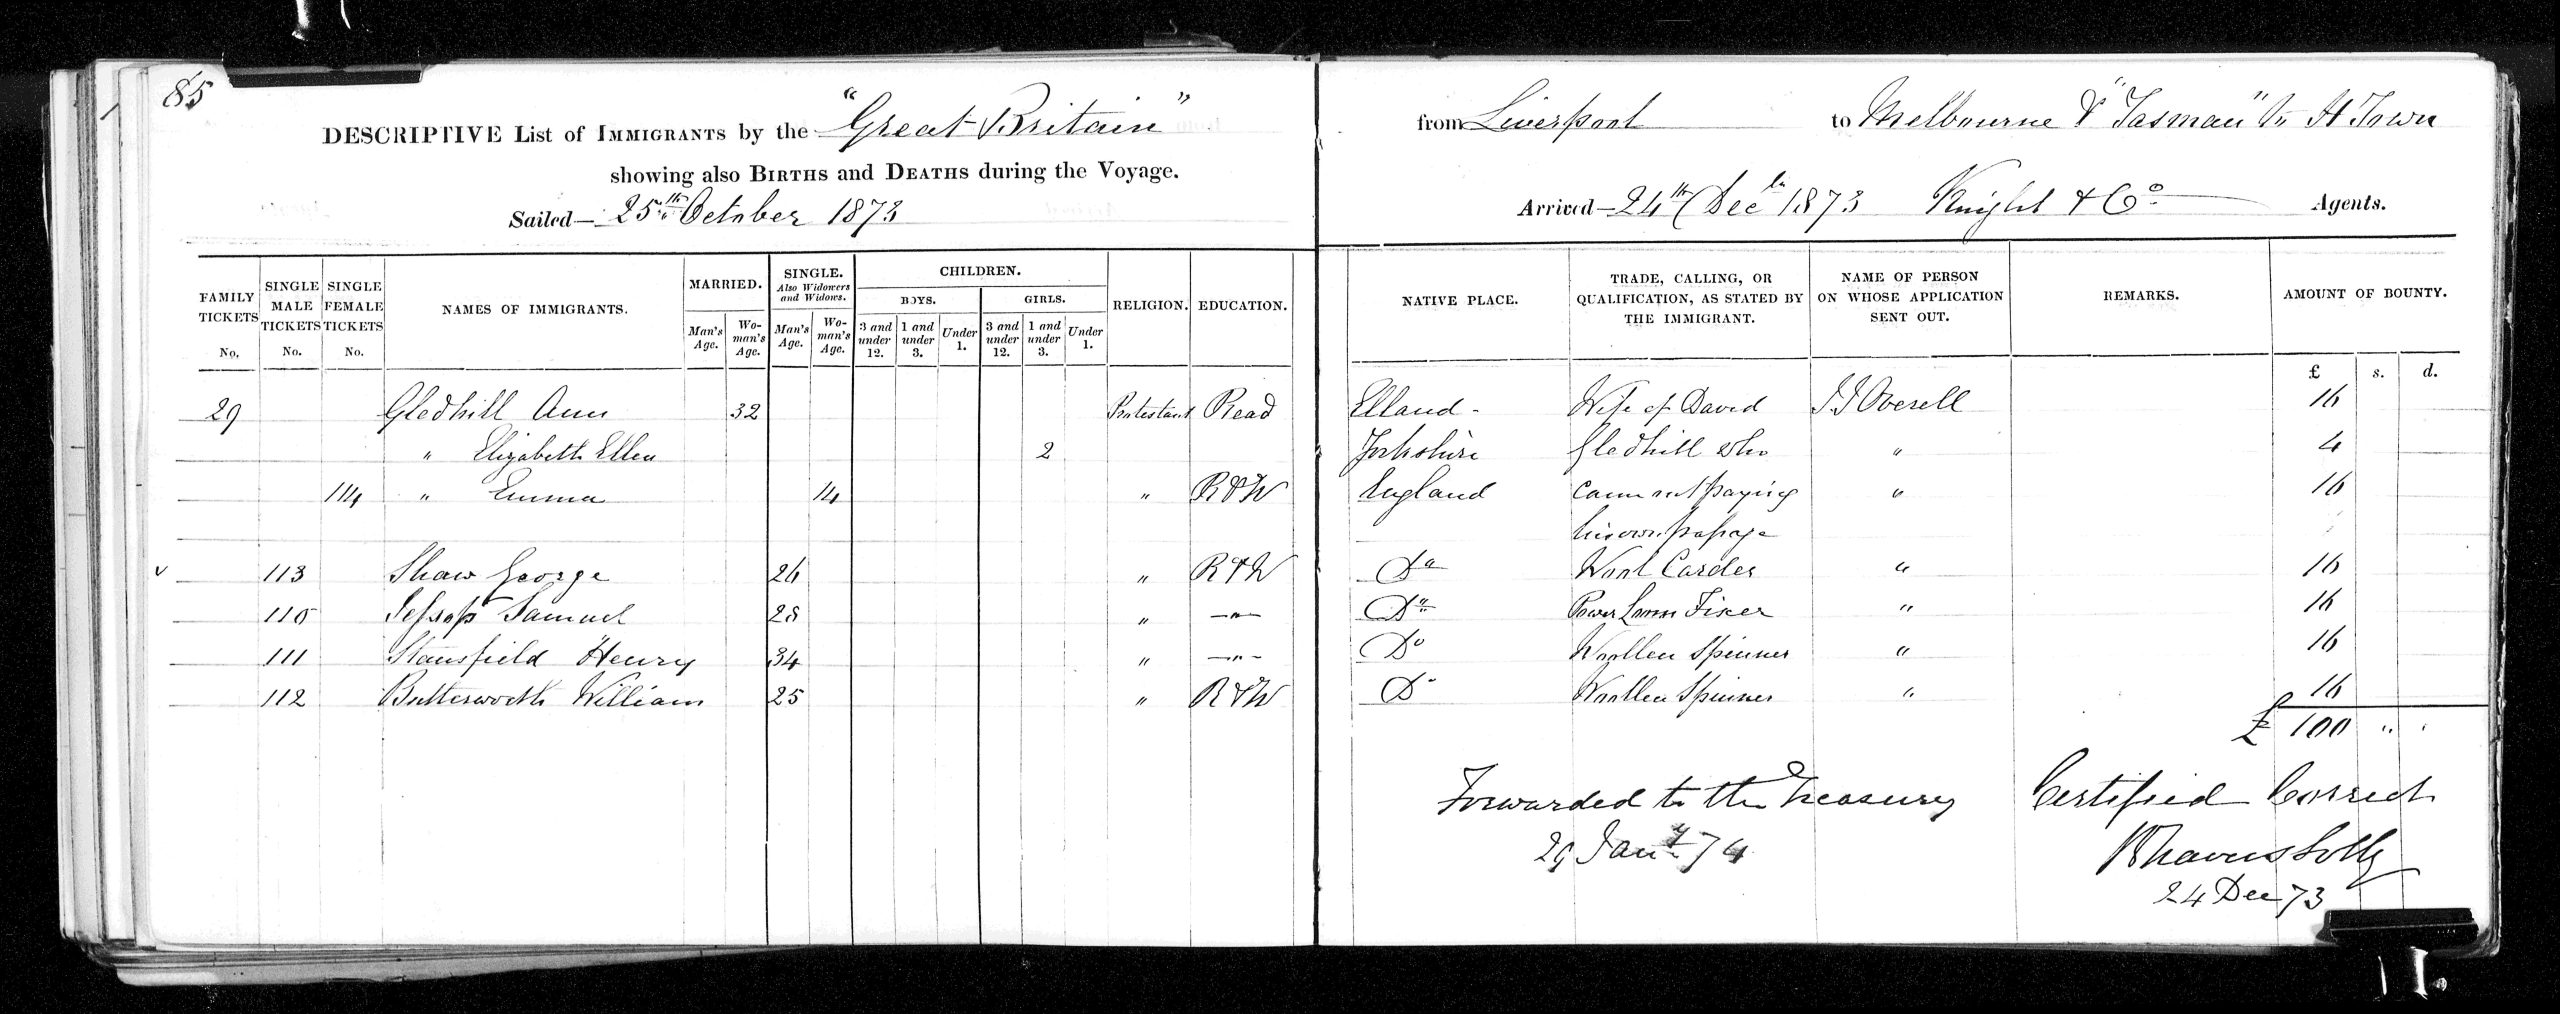 85
DESCRIPTIVE List of IMMIGRANTS by the "Great Britain" from Liverpool to Melbourne & "Tasman" to H Town
showing also BIRTHS and DEATHS during the Voyage.
Sailed— 25th October 1873 Arrived— 24th Decr 1873 Knight & Co Agents.
FAMILY TICKETS No. SINGLE MALE TICKETS No. SINGLE FEMALE TICKETS No. NAMES OF IMMIGRANTS. MARRIED. Man's Age. Wo-man's Age. SINGLE. Also Widowers and Widows. Man's Age. Wo-man's Age. CHILDREN. BOYS. 3 and under 12. 1 and under 3. Under 1. GIRLS. 3 and under 12. 1 and under 3. Under 1. RELIGION. EDUCATION. NATIVE PLACE. TRADE, CALLING, OR QUALIFICATION, AS STATED BY THE IMMIGRANT. NAME OF PERSON ON WHOSE APPLICATION SENT OUT. REMARKS. AMOUNT OF BOUNTY.
£ s. d.
29 Gledhill Ann 32 Protestant Read Elland - Wife of David J J Overell 16
" Elizabeth Ellen 2 Yorkshire Gledhill who " 4
114 " Emma 14 " R & W England came out paying " 16
his own passage
113 Shaw George 26 " R & W Do Wool Carder " 16
110 Jessop Samuel 28 " —"— Do Power Loom Fixer " 16
111 Stansfield Henry 34 " —"— Do Woollen Spinner " 16
112 Butterworth William 25 " R & W Do Woollen Spinner " 16
£ 100 " "
Forwarded to the Treasury Certified Correct
29 Jany 74
24 Dec 73